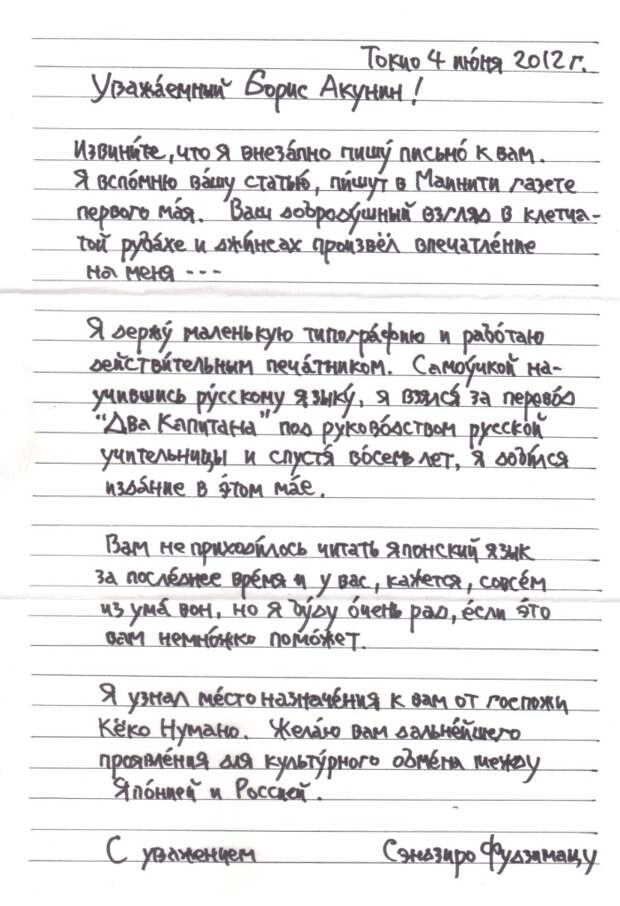 Токио 4 ию́ня 2012 г.
Уважа́емный Борис Акунин!
Извини́те, что я внеза́пно пишу́ письмо́ к вам.
Я вспо́мню ва́шу статью́, пи́шут в Маинити газете
первого ма́я. Ваш добро́душный взгляд в клетча-
той руба́хе и джи́нсах произвёл впечатле́ние
на меня ---
Я держу́ маленькую типогра́фию и рабо́таю
действи́тельным печа́тником. Самоу́чкой на-
учившись ру́сскому языку́, я взялся́ за перево́д
"Два Капитана" под руково́дством русской
учительницы и спустя́ во́семь лет, я доби́лся
изда́ние в э́том ма́е.
Вам не приходи́лось читать японский язык
за после́днее вре́мя и у вас, ка́жется, совсе́м
из ума́ вон, но я бу́ду о́чень рад, е́сли э́то
вам немно́жко помо́жет.
Я узнал ме́сто назначе́ния к вам от госпожи
Кёко Нумано. Жела́ю вам дальне́йшего
проявле́ния для культу́рного обме́на между
Япо́нией и Россией.
С уважением Сэндзиро Фудзимацу